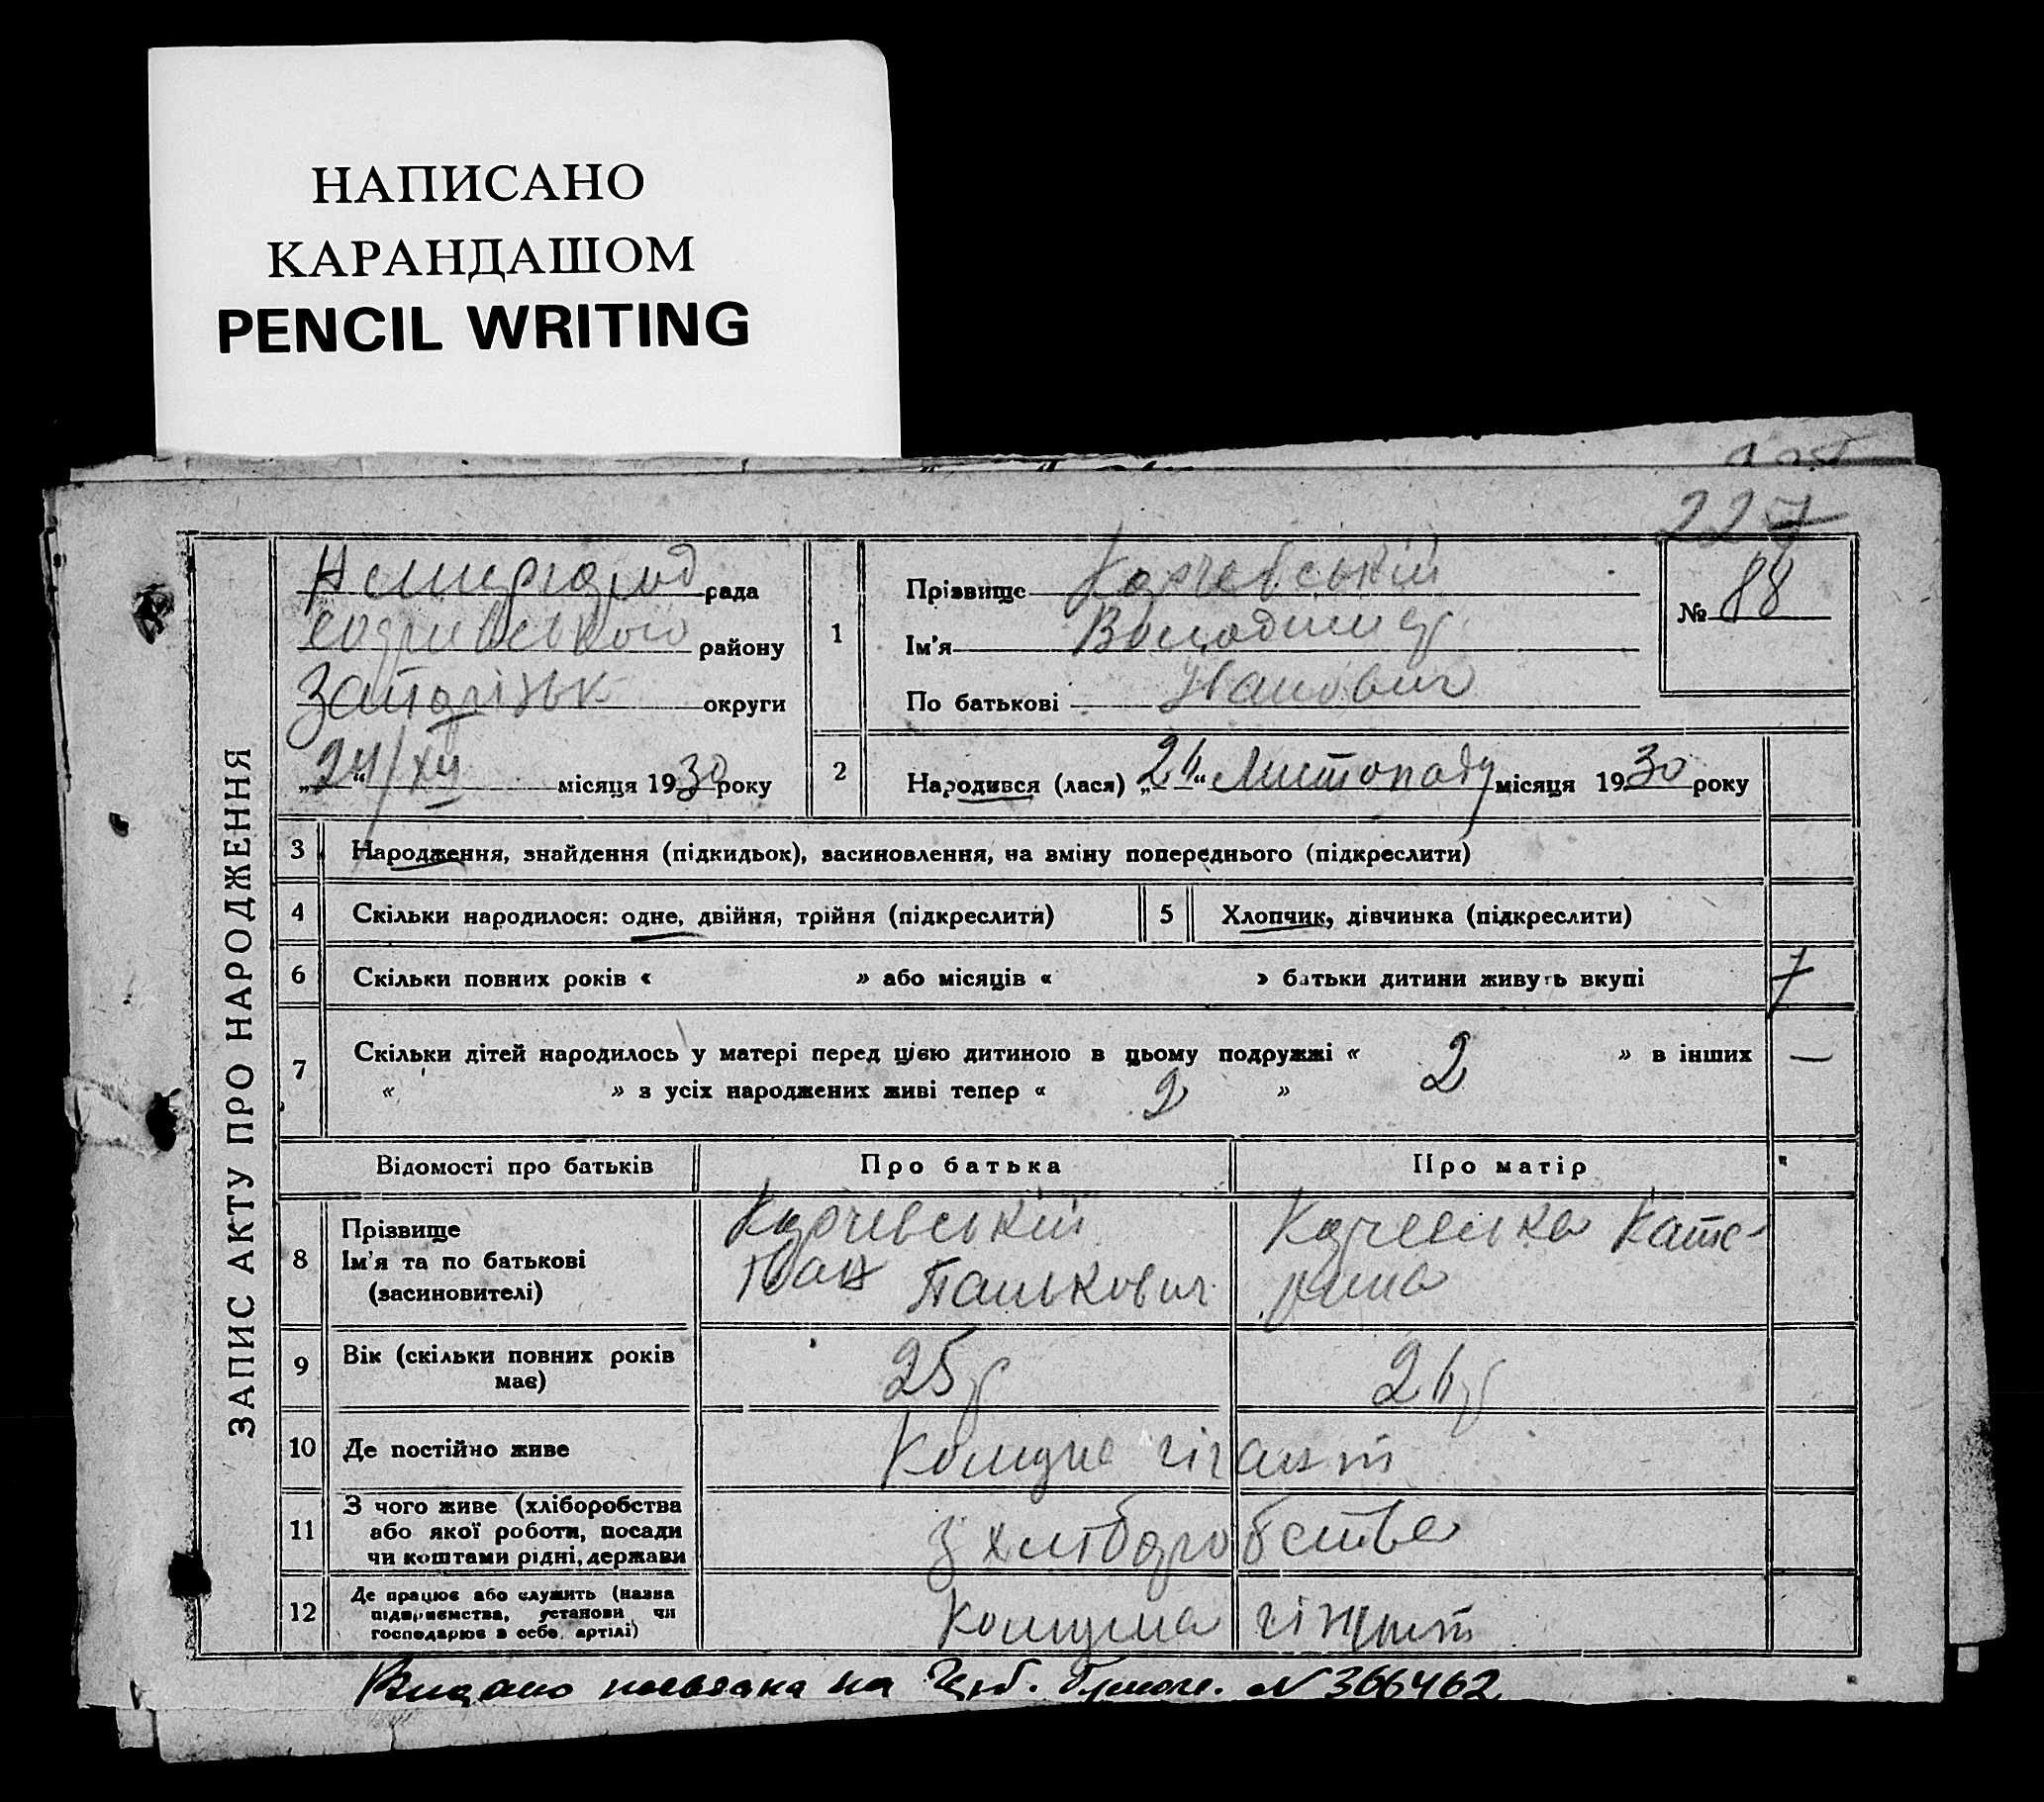 НАПИСАНО
КАРАНДАШОМ
PENCIL WRITING
227
ЗАПИС АКТУ ПРО НАРОДЖЕННЯ
рада
району
Запорізьк округи
„24“/XII місяця 1930 року
1
Прізвище Корчевський
Ім'я Володимир
По батькові Іванович
№ 88
2
Народився (лася) „26“ Листопаду місяця 1930 року
3 Народження, знайдення (підкидьок), засиновлення, на зміну попереднього (підкреслити)
4 Скільки народилося: одне, двійня, трійня (підкреслити)
5 Хлопчик, дівчинка (підкреслити)
6 Скільки повних років « » або місяців « » батьки дитини живуть вкупі 7
7 Скільки дітей народилось у матері перед цією дитиною в цьому подружжі « 2 » в інших —
« » з усіх народжених живі тепер « 2 »
Відомості про батьків Про батька Про матір
8 Прізвище
Ім'я та по батькові
(засиновителі)
Корчевський
Іван Панькович
Корчевська Кате-
рина
9 Вік (скільки повних років
має)
25р
26р
10 Де постійно живе Комуна гігант
11 З чого живе (хліборобства
або якої роботи, посади
чи коштами рідні, держави
З хліборобства
12 Де працює або служить (назва
підприємства, установи чи
господарює в себе, артілі)
Комуна гігант
Видано на № 366462